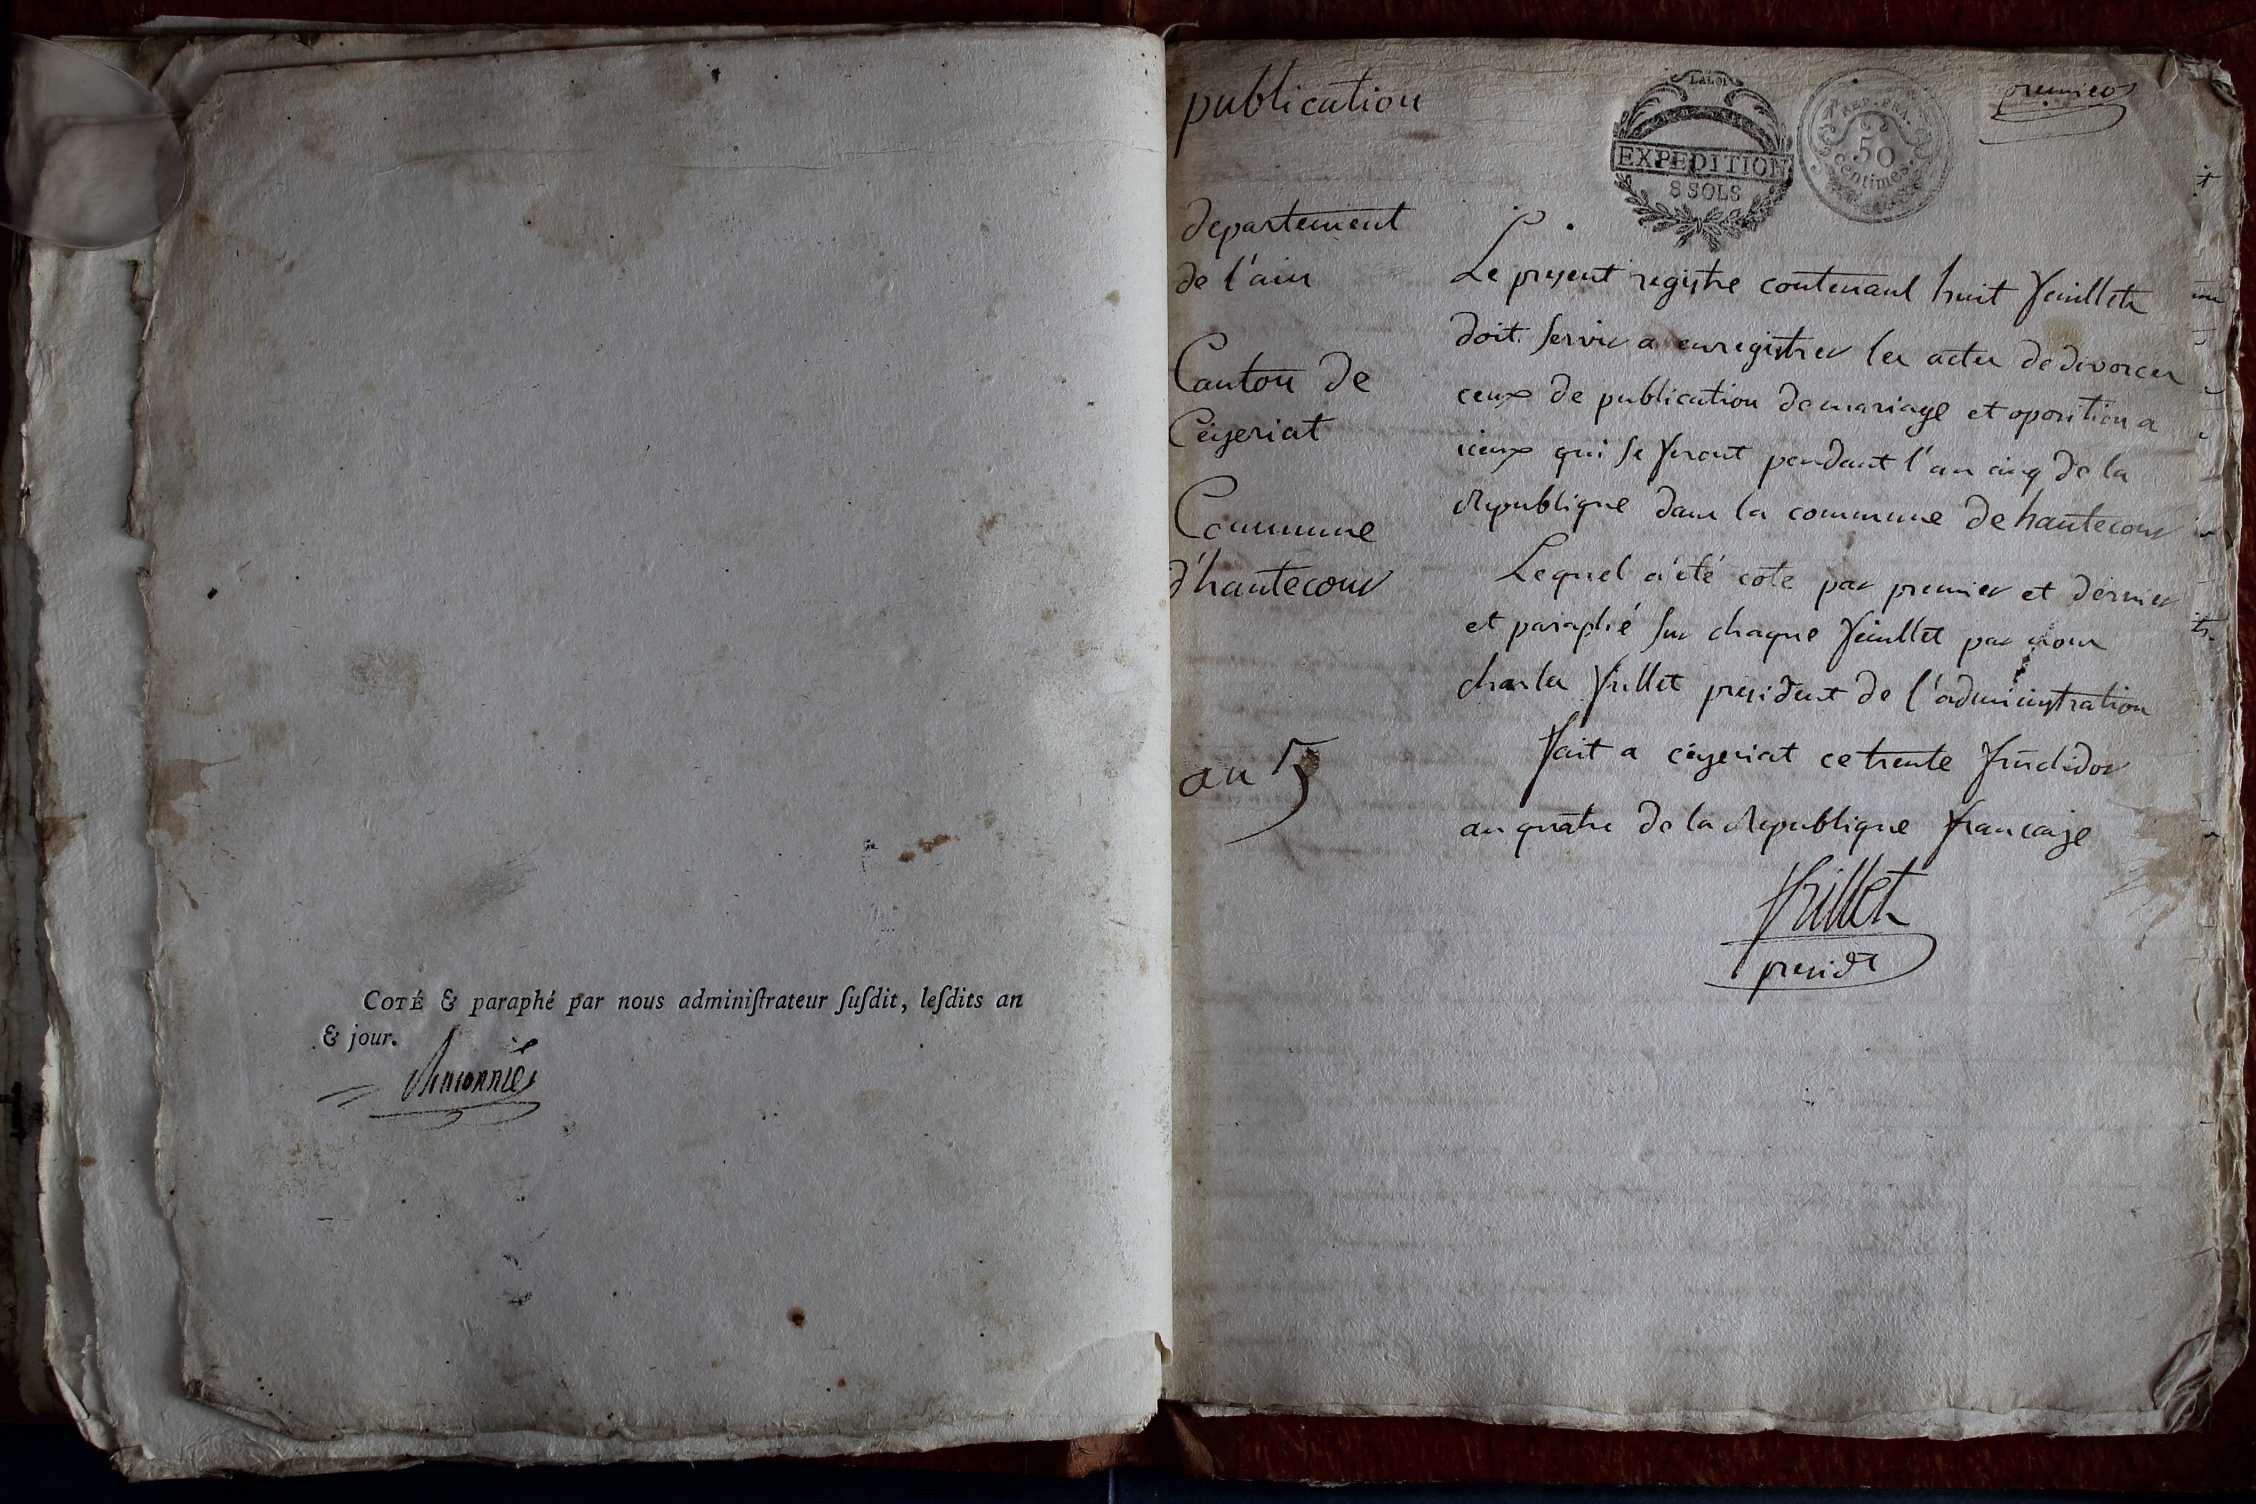 COTÉ & paraphé par nous adminiſtrateur ſuſdit, leſdits an
& jour.
publication
LA LOI
EXPEDITION
8 SOLS
REP. FRA.
50
centimes.
premier
departement
de l'ain
Canton de
Céyseriat
Commune
d'hautecour
an 5
Le present registre contenant huit feuillets
doit servir a enregistrer les actes de divorces
ceux de publication de mariage et oposition a
iceux qui se feront pendant l'an cinq de la
Republique dans la commune de hautecour
Lequel a été cote par premier et dernier
et paraphé sur chaque feuillet par nous
charles frillet president de l'administration
fait a céyseriat ce trente fructidor
an quatre de la Republique francaise
frillet
presidt